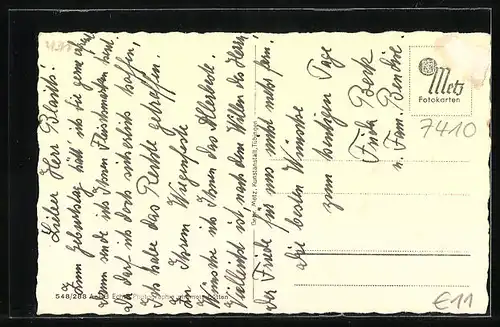 Lieber Herr Blasch!
Zum Geburtstag hätt ich Sie gerne
dann sende ich Ihnen Fleischmarken heut.
Da darf ich doch sicherlich hoffen,
Ich habe das Rechte getroffen.
Zu Ihrem Wiegenfeste
Wünsche ich Ihnen das Allerbeste.
Vielleicht ist, nach dem Willen des Herrn
der Friede für uns nicht mehr fern.
Die besten Wünsche
zum heutigen Tage
Frida Beck
u. Fam.
Metz
Fotokarten
7410
Gebr. Metz, Kunstanstalt, Tübingen
548/288
€11